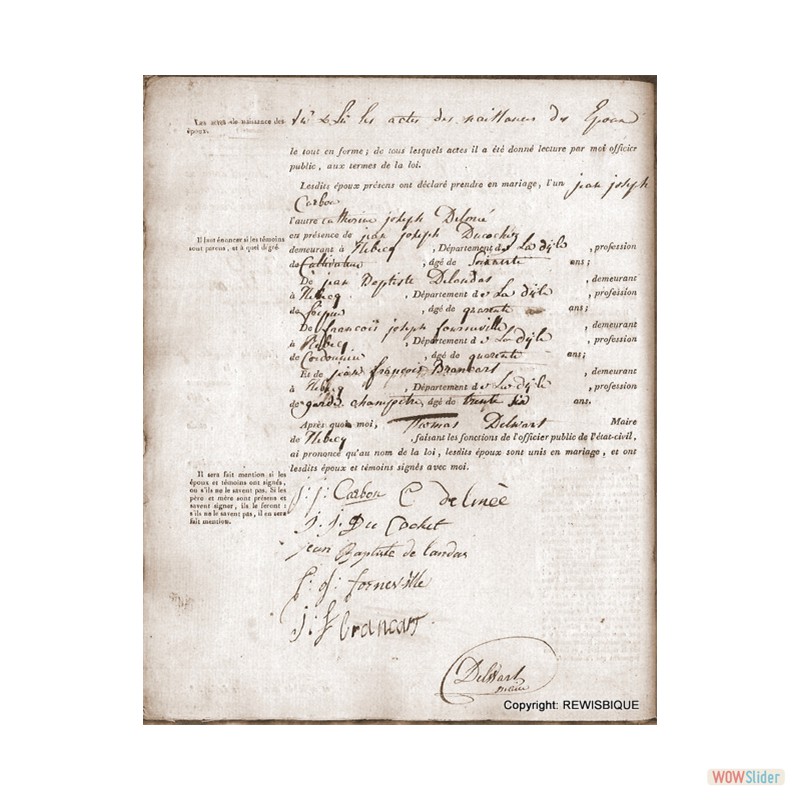 Les actes de naissance des
époux.
les actes des naissances des Epoux
le tout en forme ; de tous lesquels actes il a été donné lecture par moi officier
public, aux termes de la loi.
Lesdits époux présens ont déclaré prendre en mariage, l'un jean joseph
Carbon
l'autre catherine joseph Delmée
Il faut énoncer si les témoins
sont parens, et à quel degré.
en présence de jean joseph Ducochez
demeurant à Rebecq , Département de La dyle , profession
de Cultivateur , âgé de Soixante ans ;
De jean Baptiste Delandas , demeurant
à Rebecq , Département de La dyle , profession
de , âgé de quarente ans ;
De francois joseph forneville , demeurant
à Rebecq , Département de La dyle , profession
de Cordonnier , âgé de quarente ans ;
Et de jean françois Brancart , demeurant
à Rebecq , Département de La dyle , profession
de garde champetre, âgé de trente six ans.
Après quoi moi, Thomas Delwart Maire
de Rebecq , faisant les fonctions de l'officier public de l'état-civil,
ai prononcé qu'au nom de la loi, lesdits époux sont unis en mariage, et ont
lesdits époux et témoins signés avec moi.
Il sera fait mention si les
époux et témoins ont signés,
ou s'ils ne le savent pas. Si les
père et mère sont présens et
savent signer, ils le feront :
s'ils ne le savent pas, il en sera
fait mention.
j: j: Carbon C delmée
j. j. Du Cochet
jean Baptiste de landas
f: j: forneville
j: f brancart
Delwart
maire
Copyright: REWISBIQUE
WOWSlider